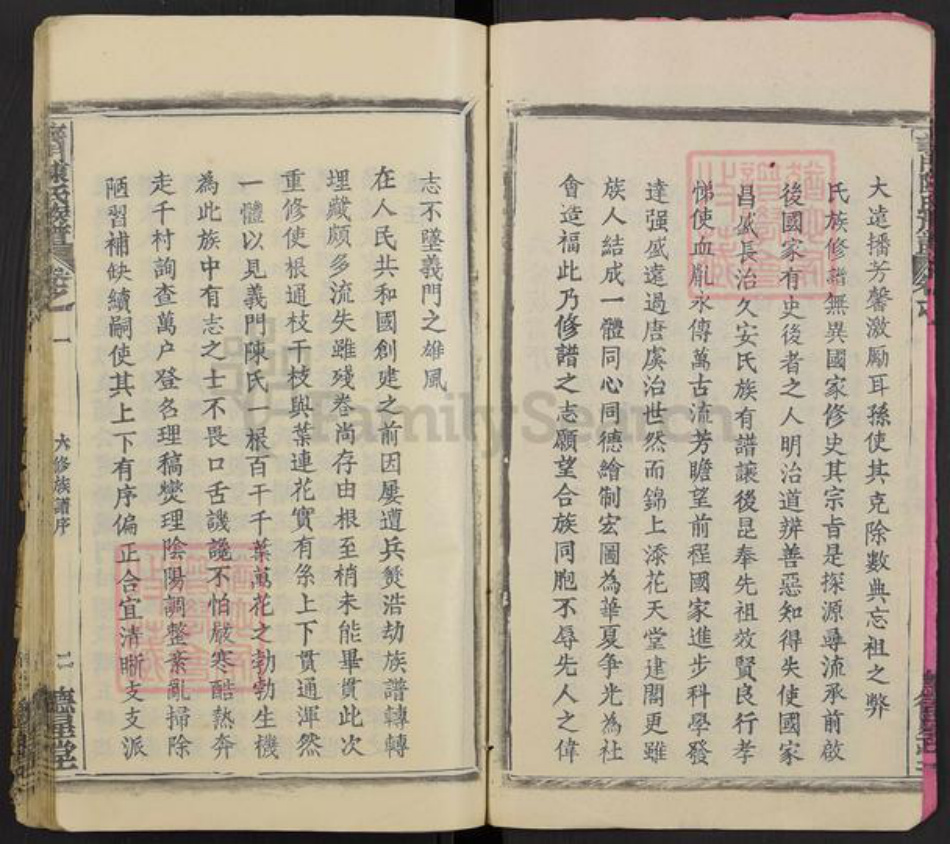 大遠播芳馨激勵耳孫使其克除數典忘祖之弊
氏族修譜無異國家修史其宗旨是探源尋流承前啟
後國家有史後者之人明治道辨善惡知得失使國家
昌盛長治久安氏族有譜讓後昆奉先祖效賢良行孝
悌使血胤永傳萬古流芳瞻望前程國家進步科學發
達强盛遠過唐虞治世然而錦上添花天堂建閣更雖
族人結成一體同心同德繪制宏圖為華夏爭光為社
會造福此乃修譜之志願望合族同胞不辱先人之偉
志不墜義門之雄風
在人民共和國創建之前因屢遭兵燹浩劫族譜轉轉
埋藏頗多流失雖殘卷尚存由根至梢未能畢貫此次
重修使根通枝干枝與葉連花實有条上下貫通渾然
一體以見義門陳氏一根百干千葉萬花之勃勃生機
為此族中有志之士不畏口舌譏讒不怕嚴寒酷熱奔
走千村詢查萬户登名理稿燮理陰陽調整紊亂掃除
陋習補缺續嗣使其上下有序偏正合宜清晰支支派
義門陳氏族譜
卷之一
六修族譜序
二
德星堂
FamilySearch